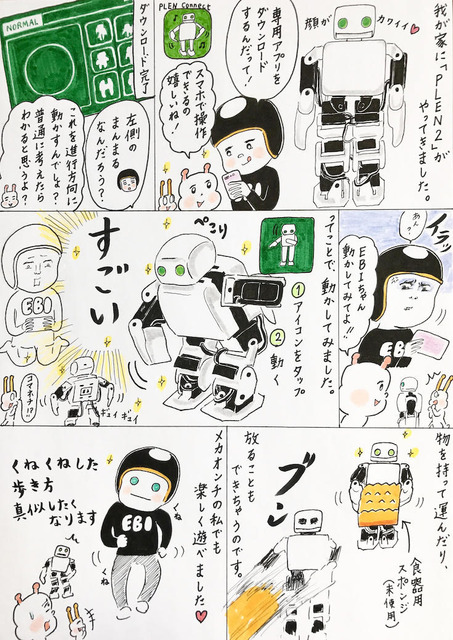 我が家に、「PLEN2」が
やってきました。
顔が
カワイイ
専用アプリを
ダウンロード
するんだって!
PLEN Connect
スマホで操作
できるの
嬉しいね!
ダウンロード完了
NORMAL
左側の
まんまる
なんだろう?
これを進行方向に
動かすんでしょ?
普通に考えたら
わかると思うよ?
イラッ
あん?
EBIちゃん
動かしてみてよ!!
EBI
ってことで、動かしてみました。
①アイコンをタップ
②動く
ぺこり
すごい
EBI
ギュイ
ギュイ
コマネチ!?
物を持って運んだり、
食器用
スポンジ
(未使用)
ブン
放ることも
できちゃうのです。
メカオンチの私でも
楽しく遊べました
EBI
くね
くね
くねくねした
歩き方
真似したく
なります